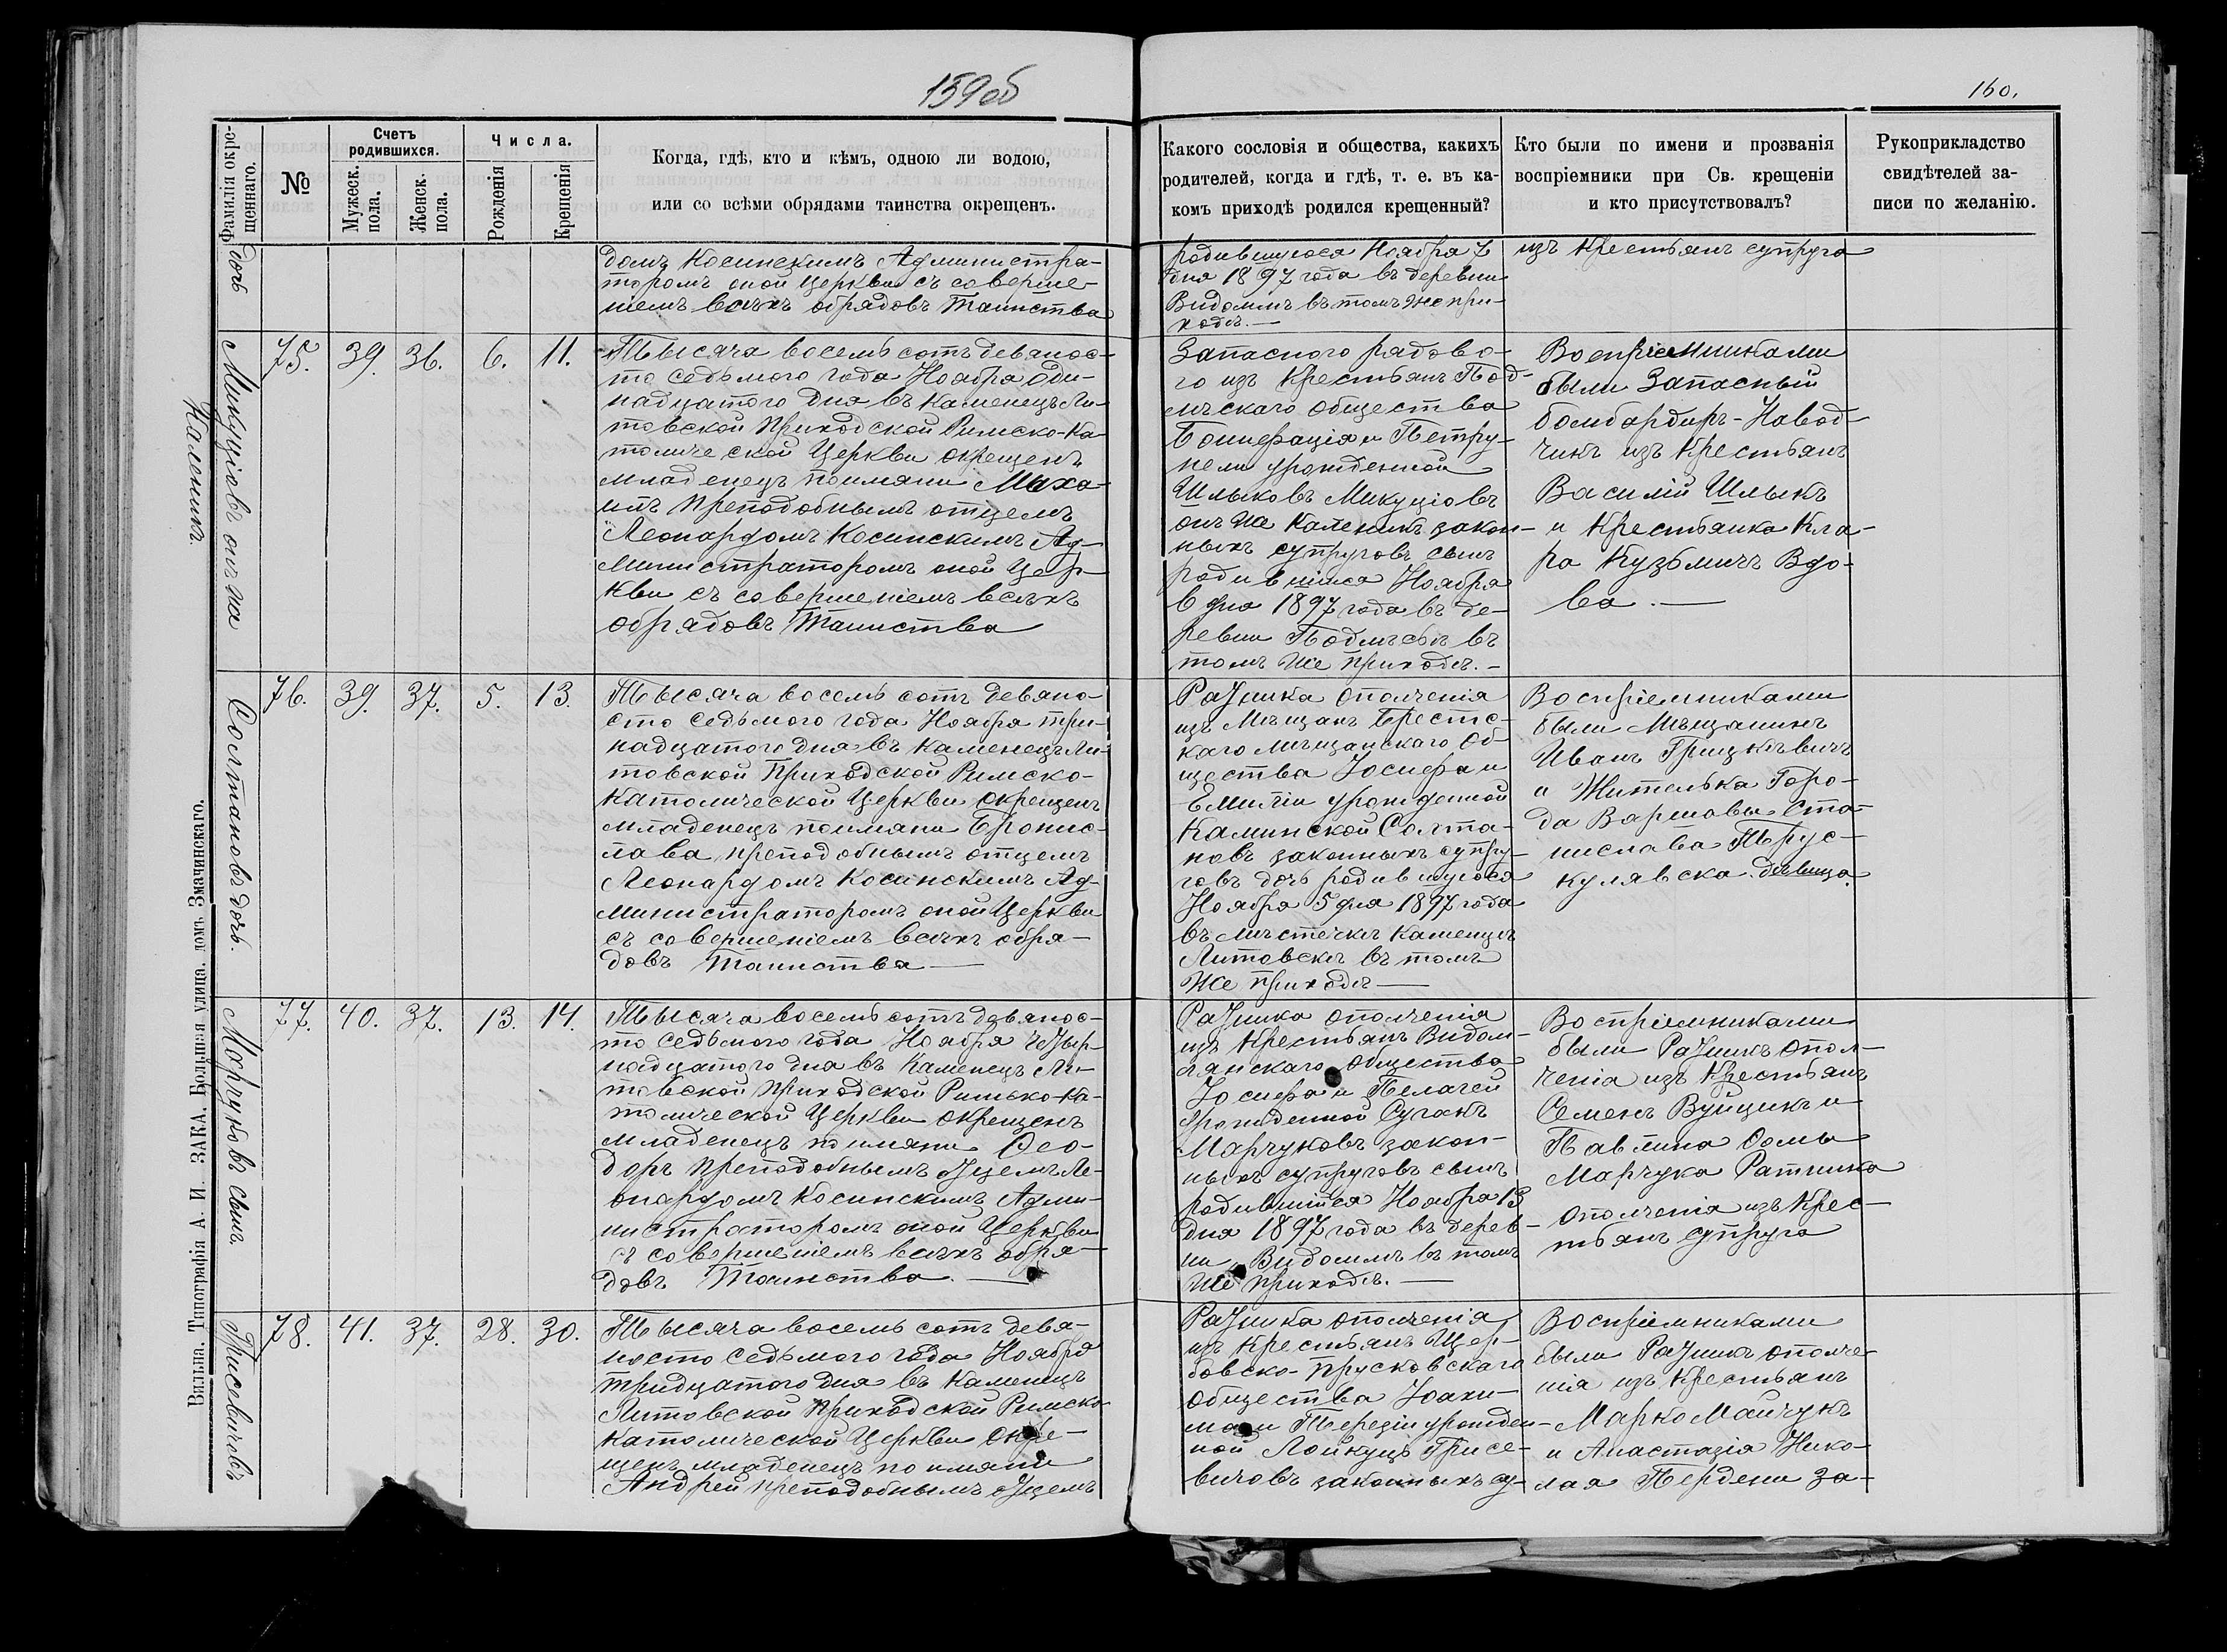 159об
160.
Фамилія окре-
щеннаго.
№
Счетъ
родившихся.
Мужеск.
пола.
Женск.
пола.
Числа.
Рожденія
Крещенія
Когда, гдѣ, кто и кѣмъ, одною ли водою,
или со всѣми обрядами таинства окрещенъ.
Какого сословія и общества, какихъ
родителей, когда и гдѣ, т. е. въ ка-
комъ приходѣ родился крещенный?
Кто были по имени и прозванія
воспріемники при Св. крещеніи
и кто присутствовалъ?
Рукоприкладство
свидѣтелей за-
писи по желанію.
дочь
домъ Косинскимъ Администра-
торомъ оной Церкви съ соверше-
ніемъ всѣхъ обрядовъ Таинства
родившуюся Ноября 7
дня 1897 года въ деревни
Видомлѣ въ томъ же при-
ходѣ.—
изъ крестьянъ супруга
Микуціовъ онъ же
Каленикъ.
75. 39. 36. 6. 11.
Тысяча восемь сотъ девянос-
то седьмого года Ноября Оди-
надцатого дня въ Каменецъ Ли-
товской Приходской Римско-Ка-
толической Церкви окрещенъ
младенецъ поимяни Миха-
илъ преподобнымъ отцемъ
Леонардомъ Косинскимъ Ад-
министраторомъ оной Цер-
кви съ совершеніемъ всѣхъ
обрядовъ Таинства
Запасного рядово-
го изъ крестьянъ Под-
лѣскаго общества
Бонифація и Петру-
нели урожденной
Шлыковъ Микуціовъ
онъ же Каленикъ закон-
ныхъ супруговъ сынъ
родившійся Ноября
6 дня 1897 года въ де-
ревни Подлѣсьѣ въ
томъ же приходѣ.—
Воспріемниками
были Запасный
бомбардиръ-Навод-
чикъ изъ крестьянъ
Василій Шлыкъ
и крестьянка Кла-
ра Кузьмичъ Вдо-
ва.—
Солтановъ дочь.
76. 39. 37. 5. 13.
Тысяча восемь сотъ девяно-
сто седьмого года Ноября три-
надцатого дня въ Каменецъ Ли-
товской Приходской Римско-
Католической Церкви окрещенъ
младенецъ поимяни Бронис-
лава, преподобнымъ отцемъ
Леонардомъ Косинскимъ Ад-
министраторомъ оной Церкви
съ совершеніемъ всѣхъ обря-
довъ Таинства—
Ратника ополченія
изъ мѣщанъ Брестс-
каго мѣщанскаго об-
щества Іосифа и
Емиліи урожденной
Каминской Солта-
новъ законныхъ супру-
говъ дочь родившуюся
Ноября 5 дня 1897 года
въ мѣстечкѣ Каменцѣ
Литовскѣ въ томъ
же приходѣ—
Воспріемниками
были Мѣщанинъ
Иванъ Грицкѣвичъ
и Жителька Горо-
да Варшавы Ста-
нислава
кулявска дѣвица.
Марчуковъ сынъ.
77. 40. 37. 13. 14.
Тысяча восемь сотъ девянос-
то седьмого года Ноября четыр-
надцатого дня въ Каменецъ Ли-
товской Приходской Римско-Ка-
толической Церкви окрещенъ
младенецъ поимяни Ѳео-
доръ преподобнымъ отцемъ Ле-
онардомъ Косинскимъ Адми-
нистраторомъ оной Церкви
съ совершеніемъ всѣхъ обря-
довъ Таинства.—
Ратника ополченія
изъ крестьянъ Видом-
лянскаго общества
Іосифа и Пелагеи
урожденной Сугакъ
Марчуковъ закон-
ныхъ супруговъ сынъ
родившійся Ноября 13
дня 1897 года въ дерев-
ни Видомлѣ въ томъ
же приходѣ.—
Воспріемниками
были Ратникъ опол-
ченія изъ крестьянъ
Семенъ Вуйцикъ и
Павлина Ѳомы
Марчука Ратника
ополченія изъ крес-
тьянъ супруга
Грисевичовъ
78. 41. 37. 28. 30.
Тысяча восемь сотъ девя-
носто седьмого года Ноября
тридцатого дня въ Каменецъ
Литовской Приходской Римско-
католической Церкви окре-
щенъ младенецъ по имяни
Андрей преподобнымъ отцемъ
Ратника ополченія
изъ крестьянъ Щер-
бовско-Прусковскаго
общества Іоахи-
ма и Терезіи урожден-
ной Лойкуцъ Грисе-
вичовъ законныхъ су-
Воспріемниками
были Ратникъ ополче-
нія изъ крестьянъ
Марко Майчукъ
и Анастазія Нико-
лая за-
Вильна. Типографія А. И. ЗАКА. Большая улица, домъ Змачинскаго.